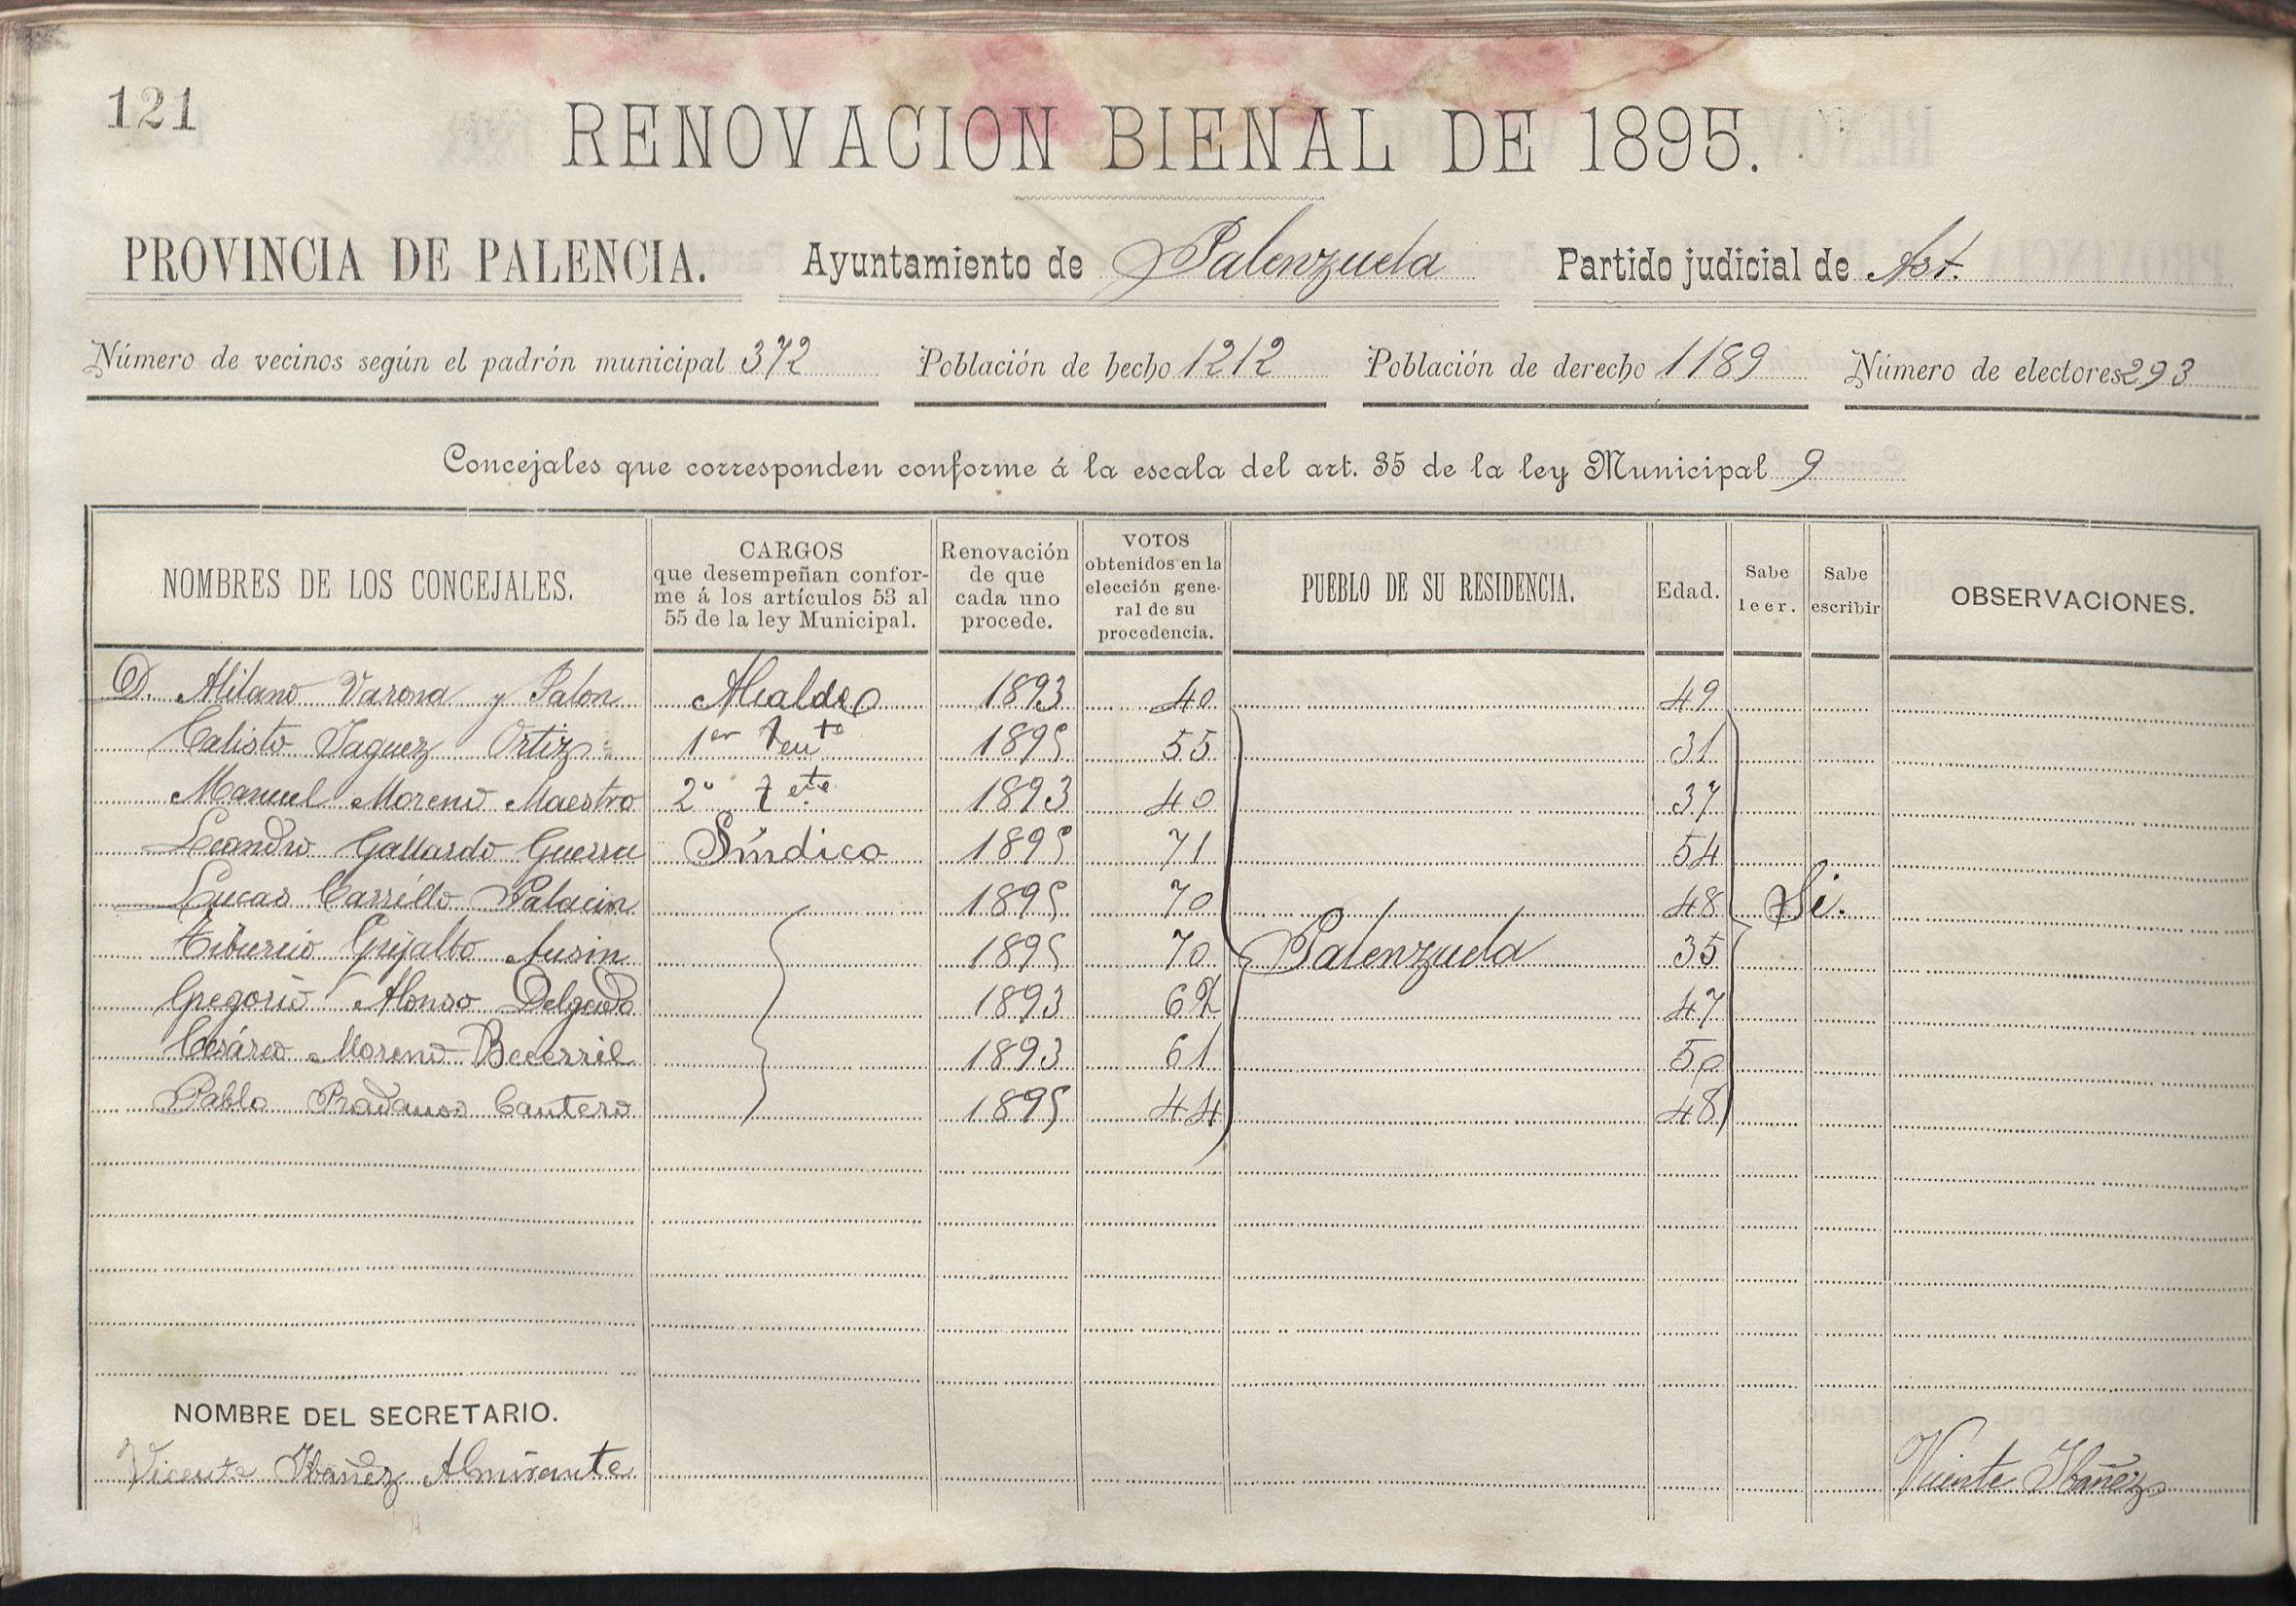 121
RENOVACION BIENAL DE 1895.
PROVINCIA DE PALENCIA. Ayuntamiento de Palenzuela Partido judicial de Ast.
Número de vecinos según el padrón municipal 372 Población de hecho 1212 Población de derecho 1189 Número de electores 293
Concejales que corresponden conforme á la escala del art. 35 de la ley Municipal 9
NOMBRES DE LOS CONCEJALES. CARGOS que desempeñan conforme á los artículos 53 al 55 de la ley Municipal. Renovación de que cada uno procede. VOTOS obtenidos en la elección general de su procedencia. PUEBLO DE SU RESIDENCIA. Edad. Sabe leer. Sabe escribir OBSERVACIONES.
D. Varona y Alcalde 1893 40 49
Calisto Vaguez Ortiz 1er Tente 1895 55 31
Manuel Moreno Maestro 2º Tete 1893 40 37
Leandro Gallardo Guerra Síndico 1895 71 54
Lucas Carrillo Palacin 1895 70 48 Si.
Tiburcio Grijalbo Ausin 1895 70 Palenzuela 35
Gregorio Alonso Delgado 1893 62 47
Cesáreo Moreno Becerril 1893 61 50
Pablo Pradanos Cantero 1895 44 48
NOMBRE DEL SECRETARIO.
Vicente Ibañez Almirante Vicente Ibañez